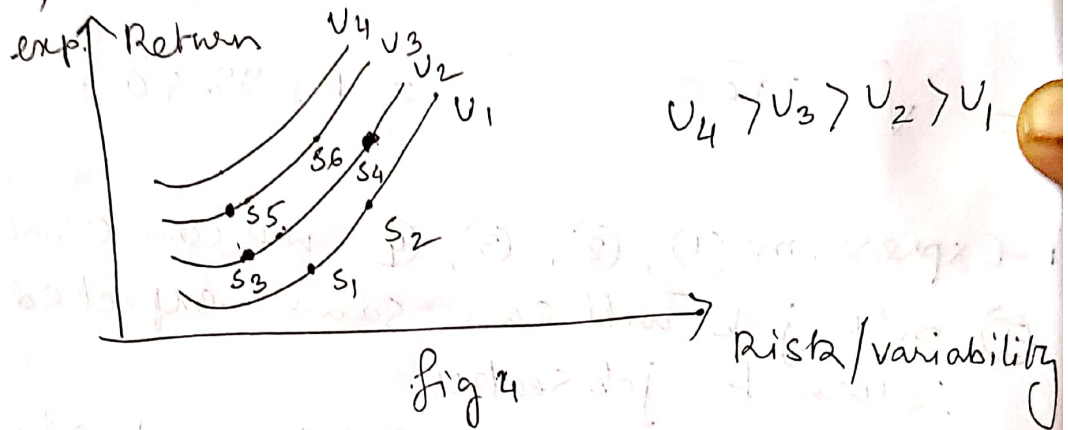 exp. Return
U4
U3
U2
U1
U4 > U3 > U2 > U1
S6
S4
S5
S2
S3
S1
Risk/variability
fig 4